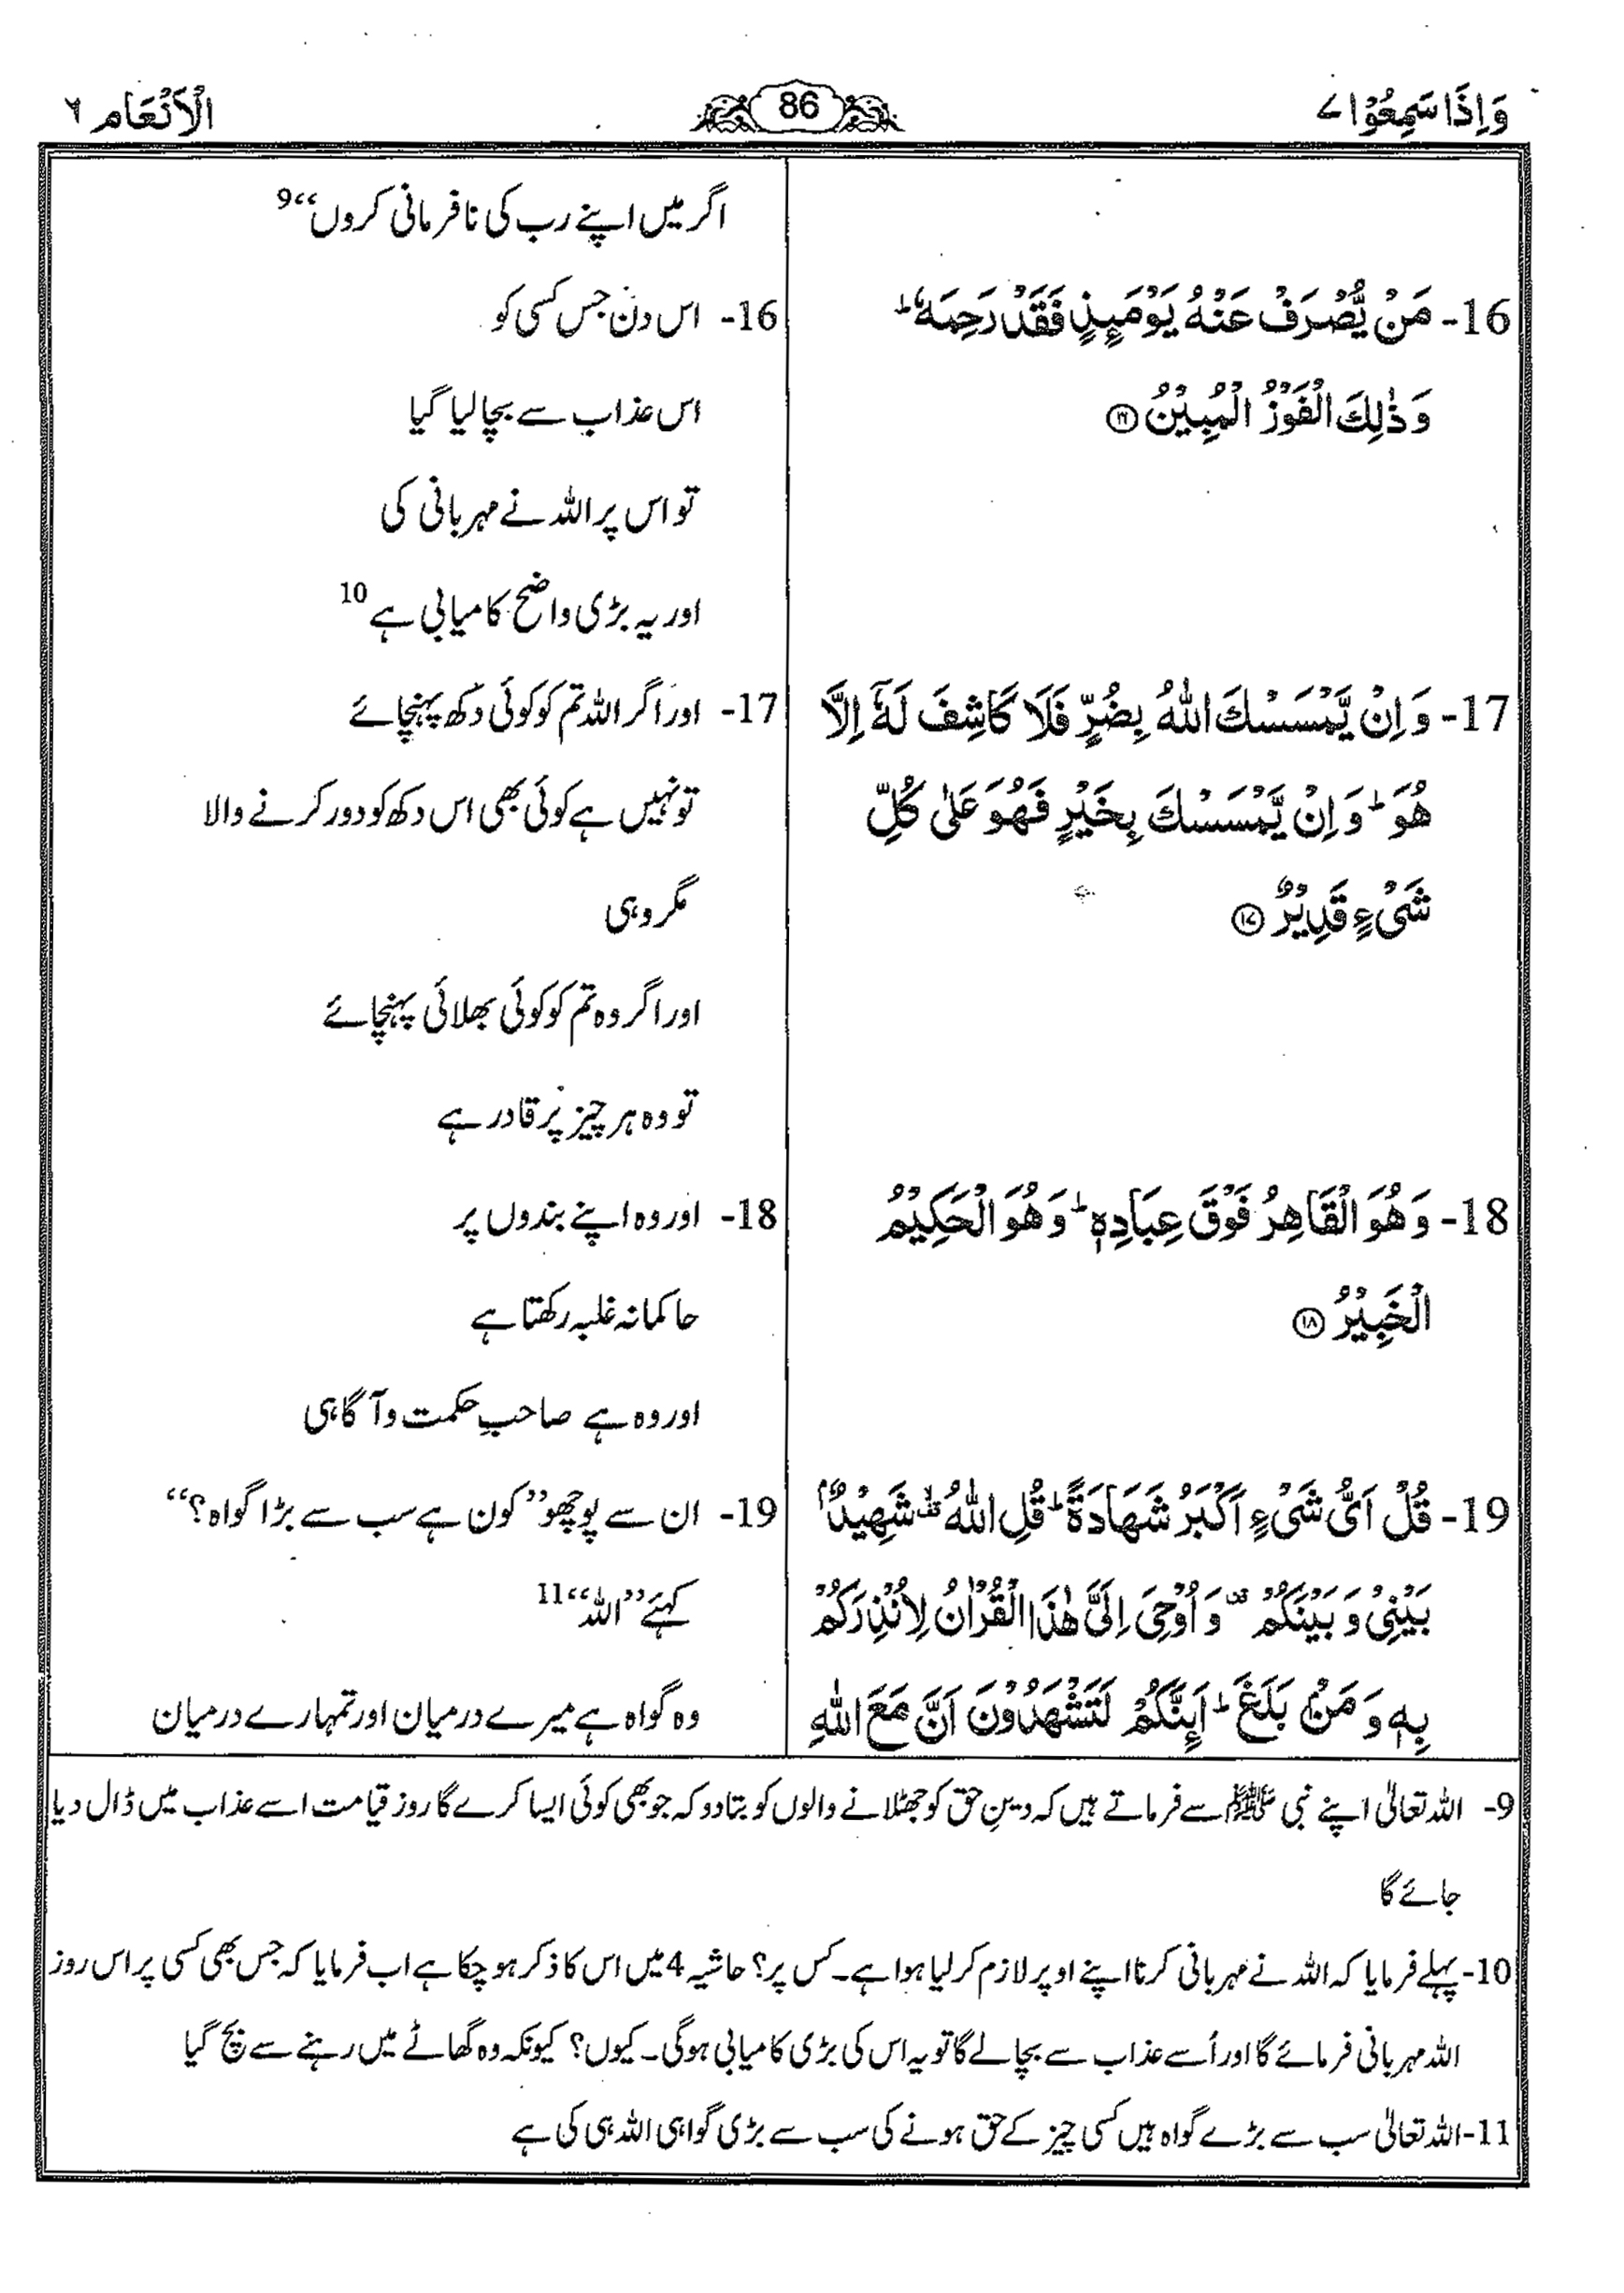 وَاِذَا سَمِعُوۡا ۷
86
الۡاَنۡعَام ۶
اگر میں اپنے رب کی نافرمانی کروں‘‘9
16- مَنۡ يُّصۡرَفۡ عَنۡهُ يَوۡمَئِذٍ فَقَدۡ رَحِمَهٗ ؕ
وَذٰلِكَ الۡفَوۡزُ الۡمُبِيۡنُ ۝۱۶
16- اس دن جس کسی کو
اس عذاب سے بچا لیا گیا
تو اس پر اللہ نے مہربانی کی
اور یہ بڑی واضح کامیابی ہے 10
17- وَ اِنۡ يَّمۡسَسۡكَ اللّٰهُ بِضُرٍّ فَلَا كَاشِفَ لَهٗۤ اِلَّا
هُوَ ؕ وَ اِنۡ يَّمۡسَسۡكَ بِخَيۡرٍ فَهُوَ عَلٰى كُلِّ
شَىۡءٍ قَدِيۡرٌ ۝۱۷
17- اور اگر اللہ تم کو کوئی دکھ پہنچائے
تو نہیں ہے کوئی بھی اس دکھ کو دور کرنے والا
مگر وہی
اور اگر وہ تم کو کوئی بھلائی پہنچائے
تو وہ ہر چیز پر قادر ہے
18- وَ هُوَ الۡقَاهِرُ فَوۡقَ عِبَادِهٖ ؕ وَ هُوَ الۡحَكِيۡمُ
الۡخَبِيۡرُ ۝۱۸
18- اور وہ اپنے بندوں پر
حاکمانہ غلبہ رکھتا ہے
اور وہ ہے صاحبِ حکمت و آگاہی
19- قُلۡ اَىُّ شَىۡءٍ اَكۡبَرُ شَهَادَةً ؕ قُلِ اللّٰهُ ۟ۙ شَهِيۡدٌۢ
بَيۡنِىۡ وَ بَيۡنَكُمۡ ۟ وَ اُوۡحِىَ اِلَىَّ هٰذَا الۡقُرۡاٰنُ لِاُنۡذِرَكُمۡ
بِهٖ وَ مَنۡۢ بَلَغَ ؕ اَئِنَّكُمۡ لَتَشۡهَدُوۡنَ اَنَّ مَعَ اللّٰهِ
19- ان سے پوچھو ’’کون ہے سب سے بڑا گواہ؟‘‘
کہئے ’’اللہ‘‘11
وہ گواہ ہے میرے درمیان اور تمہارے درمیان
9- اللہ تعالیٰ اپنے نبی ﷺ سے فرماتے ہیں کہ دینِ حق کو جھٹلانے والوں کو بتا دو کہ جو بھی کوئی ایسا کرے گا روز قیامت اسے عذاب میں ڈال دیا
جائے گا
10- پہلے فرمایا کہ اللہ نے مہربانی کرنا اپنے اوپر لازم کر لیا ہوا ہے۔ کس پر؟ حاشیہ 4 میں اس کا ذکر ہو چکا ہے اب فرمایا کہ جس بھی کسی پر اس روز
اللہ مہربانی فرمائے گا اور اُسے عذاب سے بچا لے گا تو یہ اس کی بڑی کامیابی ہو گی۔ کیوں؟ کیونکہ وہ گھاٹے میں رہنے سے بچ گیا
11- اللہ تعالیٰ سب سے بڑے گواہ ہیں کسی چیز کے حق ہونے کی سب سے بڑی گواہی اللہ ہی کی ہے